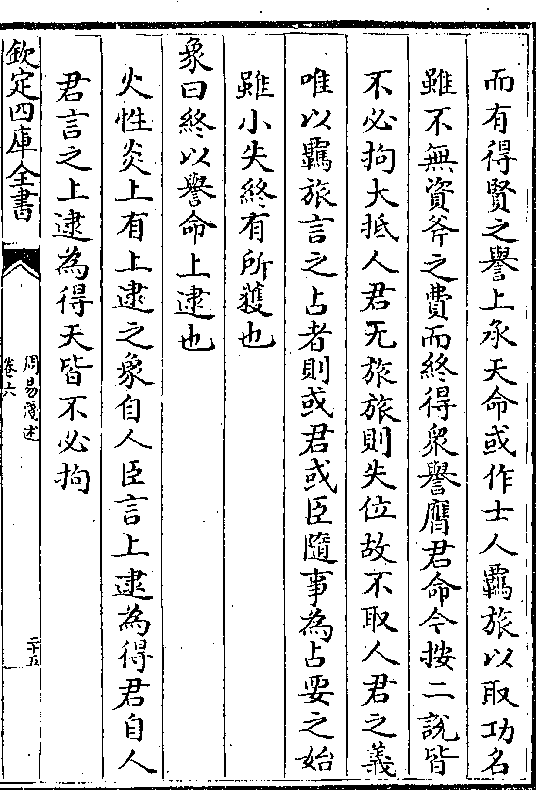 而有得賢之譽上承天命或作士人羈旅以取功名
雖不無資斧之費而終得衆譽膺君命今按二說皆
不必拘大抵人君无旅旅則失位故不取人君之義
唯以羈旅言之占者則或君或臣隨事為占要之始
雖小失終有所獲也
象曰終以譽命上逮也
火性炎上有上逮之象自人臣言上逮為得君自人
君言之上逮為得天皆不必拘
欽定四庫全書
周易淺述
卷六
二十五